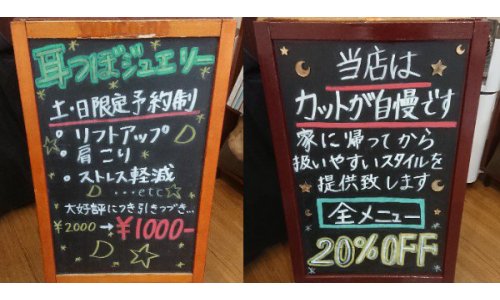 耳つぼジュエリー
土・日限定予約制
・リフトアップ
・肩こり
・ストレス軽減
・・・etc
大好評につき引きつづき…
¥2000→¥1000-
当店は
カットが自慢です
家に帰ってから
扱いやすいスタイルを
提供致します
全メニュー
20%OFF